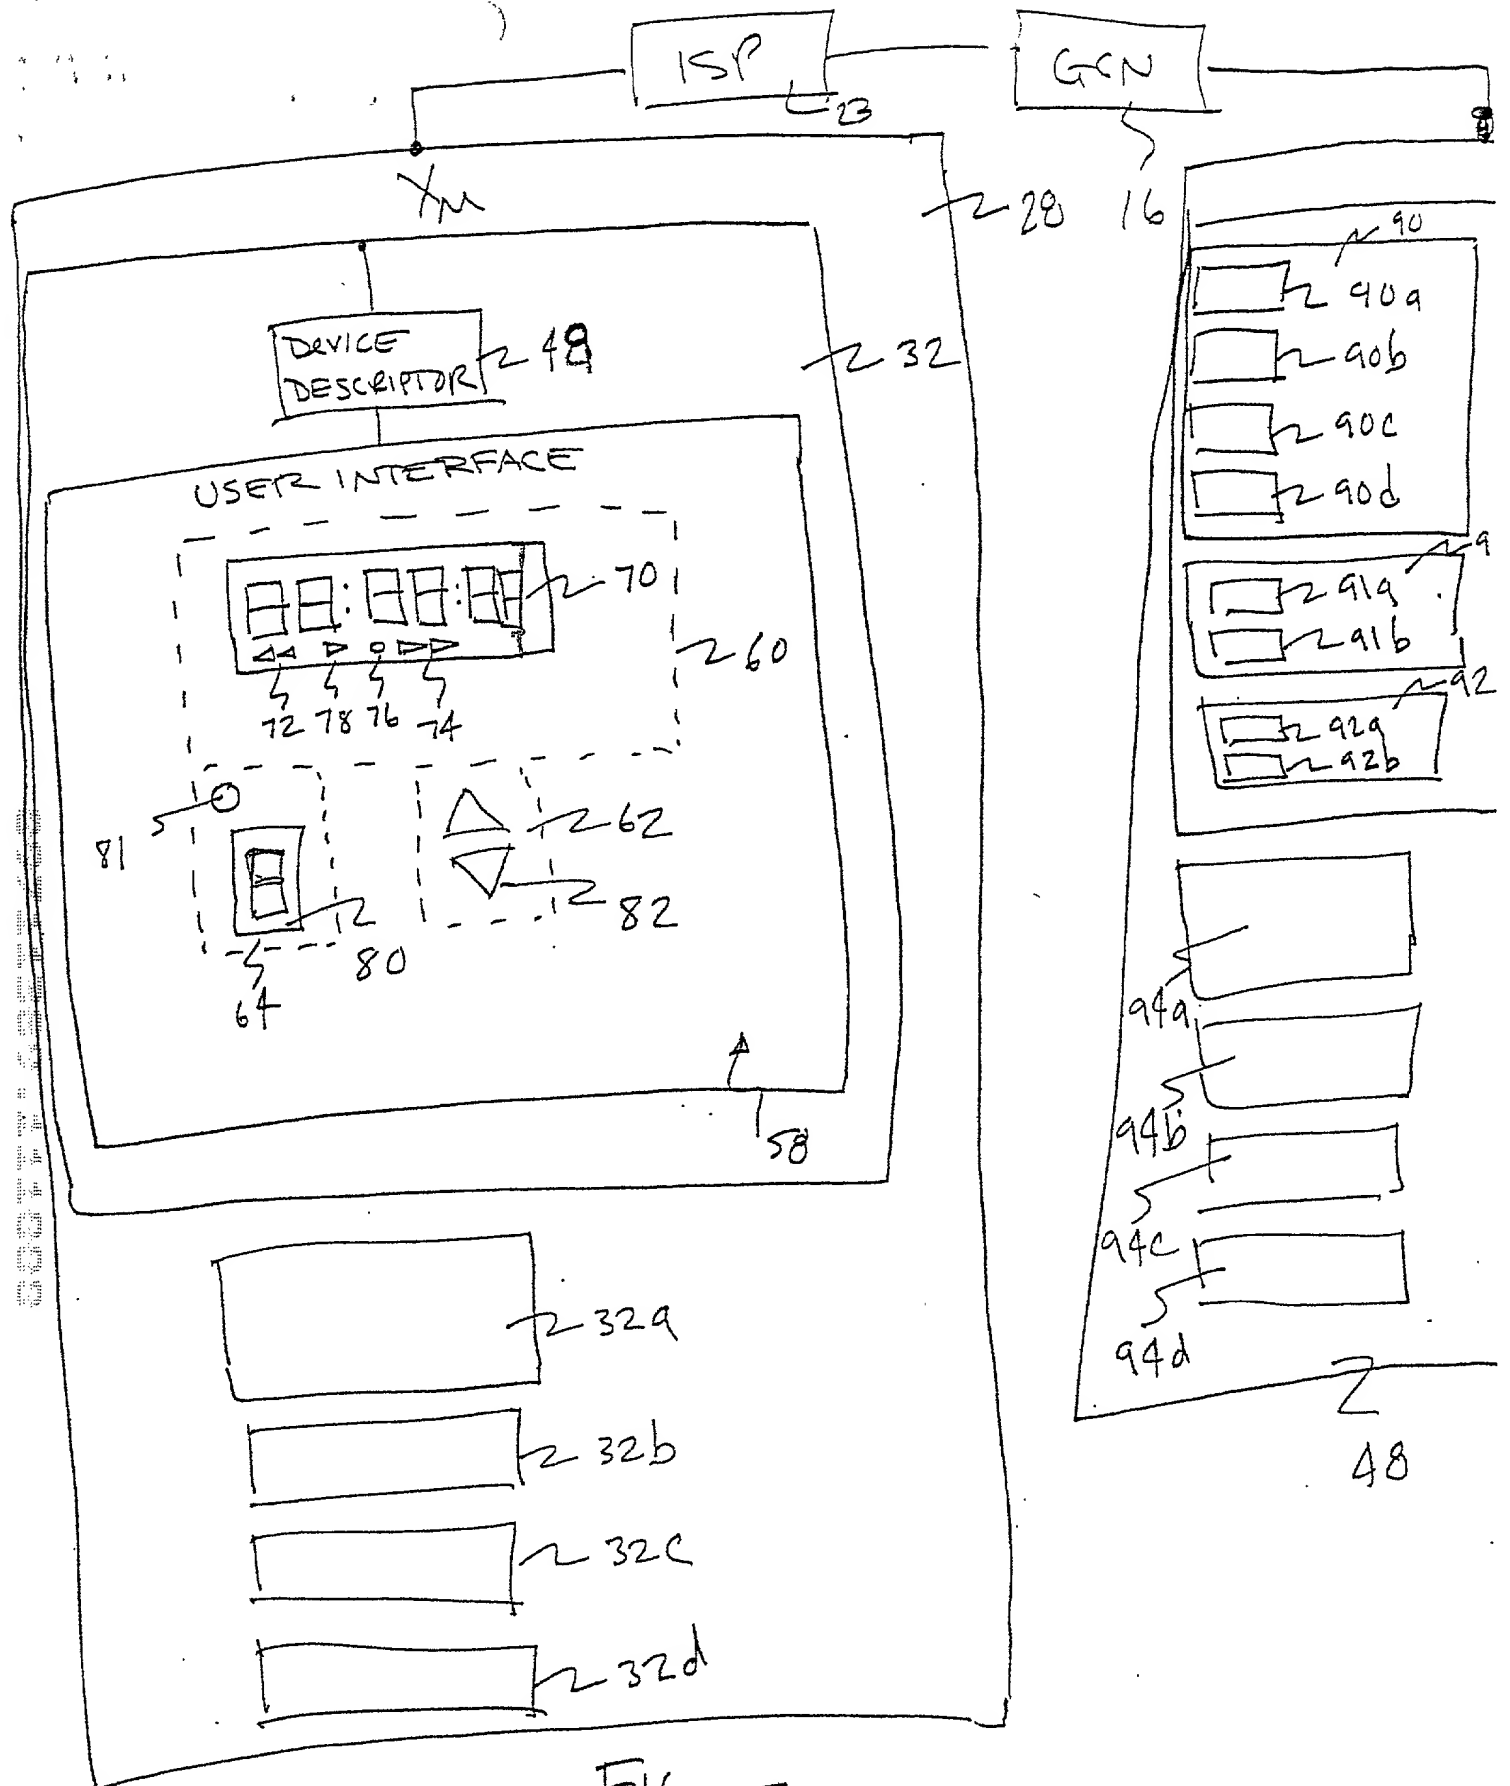 ISP
23
GCN
16
28
32
DEVICE
DESCRIPTOR
48
USER INTERFACE
88:88:88
70
60
72 78 76 74
81
62
82
80
64
58
32a
32b
32c
32d
90
90a
90b
90c
90d
9
91a
91b
92
92a
92b
94a
94b
94c
94d
48